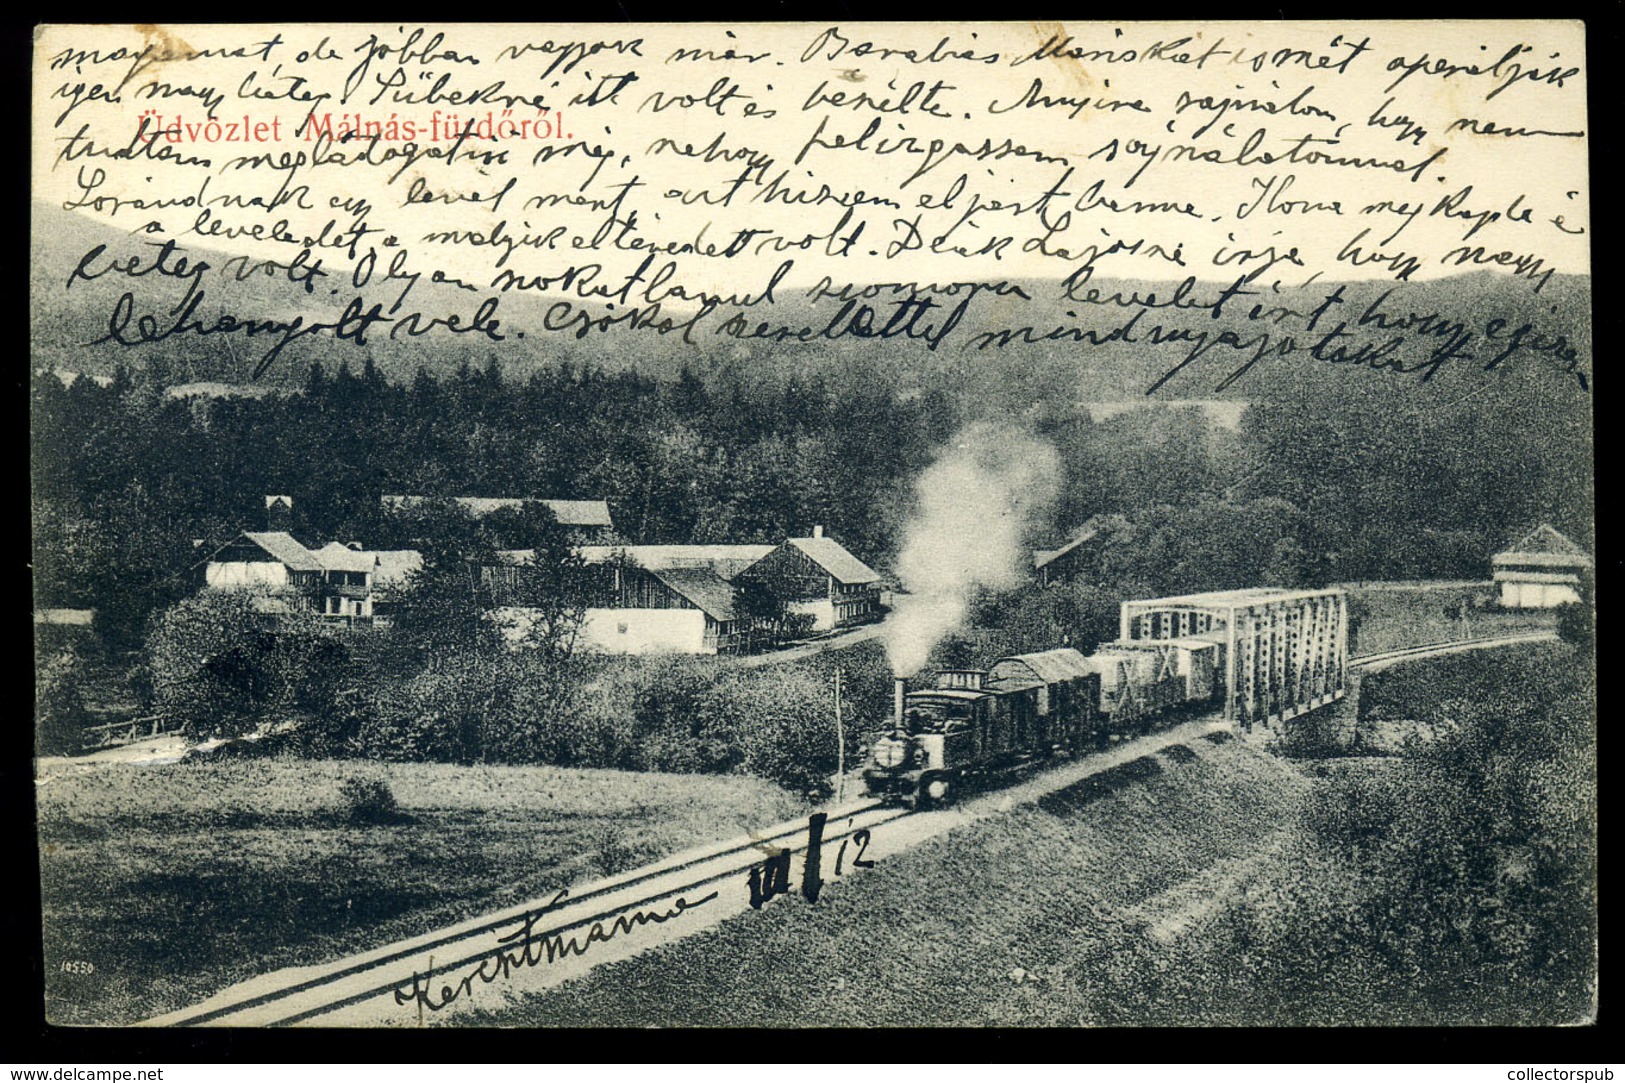 magamat, de jobban vagyok már. Barabás Mariskát ismét operálják
igen nagy beteg. itt volt és beszélte. Annyira sajnálom, hogy nem
Üdvözlet Málnás-fürdőről.
tudtam meglátogatni még, nehogy felizgassam sajnálatommal.
Lorándnak egy levél ment, azt hiszem eljárt benne. Ilona megkapta é
a leveledet, a melyik eltévedett volt. Deák Lajosné írja, hogy nagy
beteg volt. Olyan szokatlanul szomoru levelet írt, hogy egészen
lehangolt vele. Csókol szeretettel mindnyájotokat
Keresztmama III/12
10550
www.delcampe.net
collectorspub